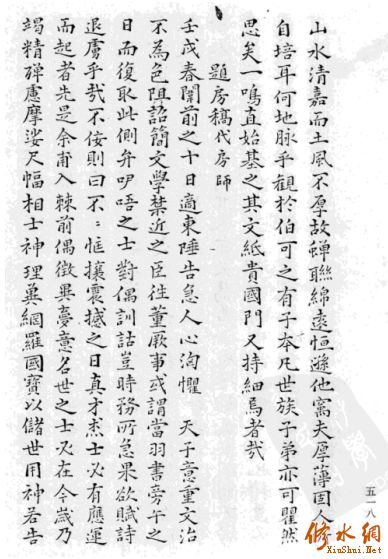 山水清嘉而土風不厚故蟬聯綿遠恒遜他寓夫厚薄因人
自培耳何地脉乎觀於伯可之有子本凡世族子弟亦可瞿然
思矣一鳴直始基之其文紙貴國門又持細焉者哉
題房稿代房師
壬戌春闈前之十日適東陲告急人心洶懼 天子意重文治
不為色阻詔簡文學禁近之臣往董厥事或謂當羽書旁午之
日而復取此側弁呻唔之士對偶訓詁豈時務所急果欲賦詩
退虜乎哉不佞則曰不:恇攘震撼之日真才杰士必有應運
而起者先是余甫入棘前偶徵異夢意名世之士必在今歲乃
竭精殫慮摩娑尺幅相士神理冀網羅國寶以儲世用神若告
五一八
修水網
XiuShui.Net